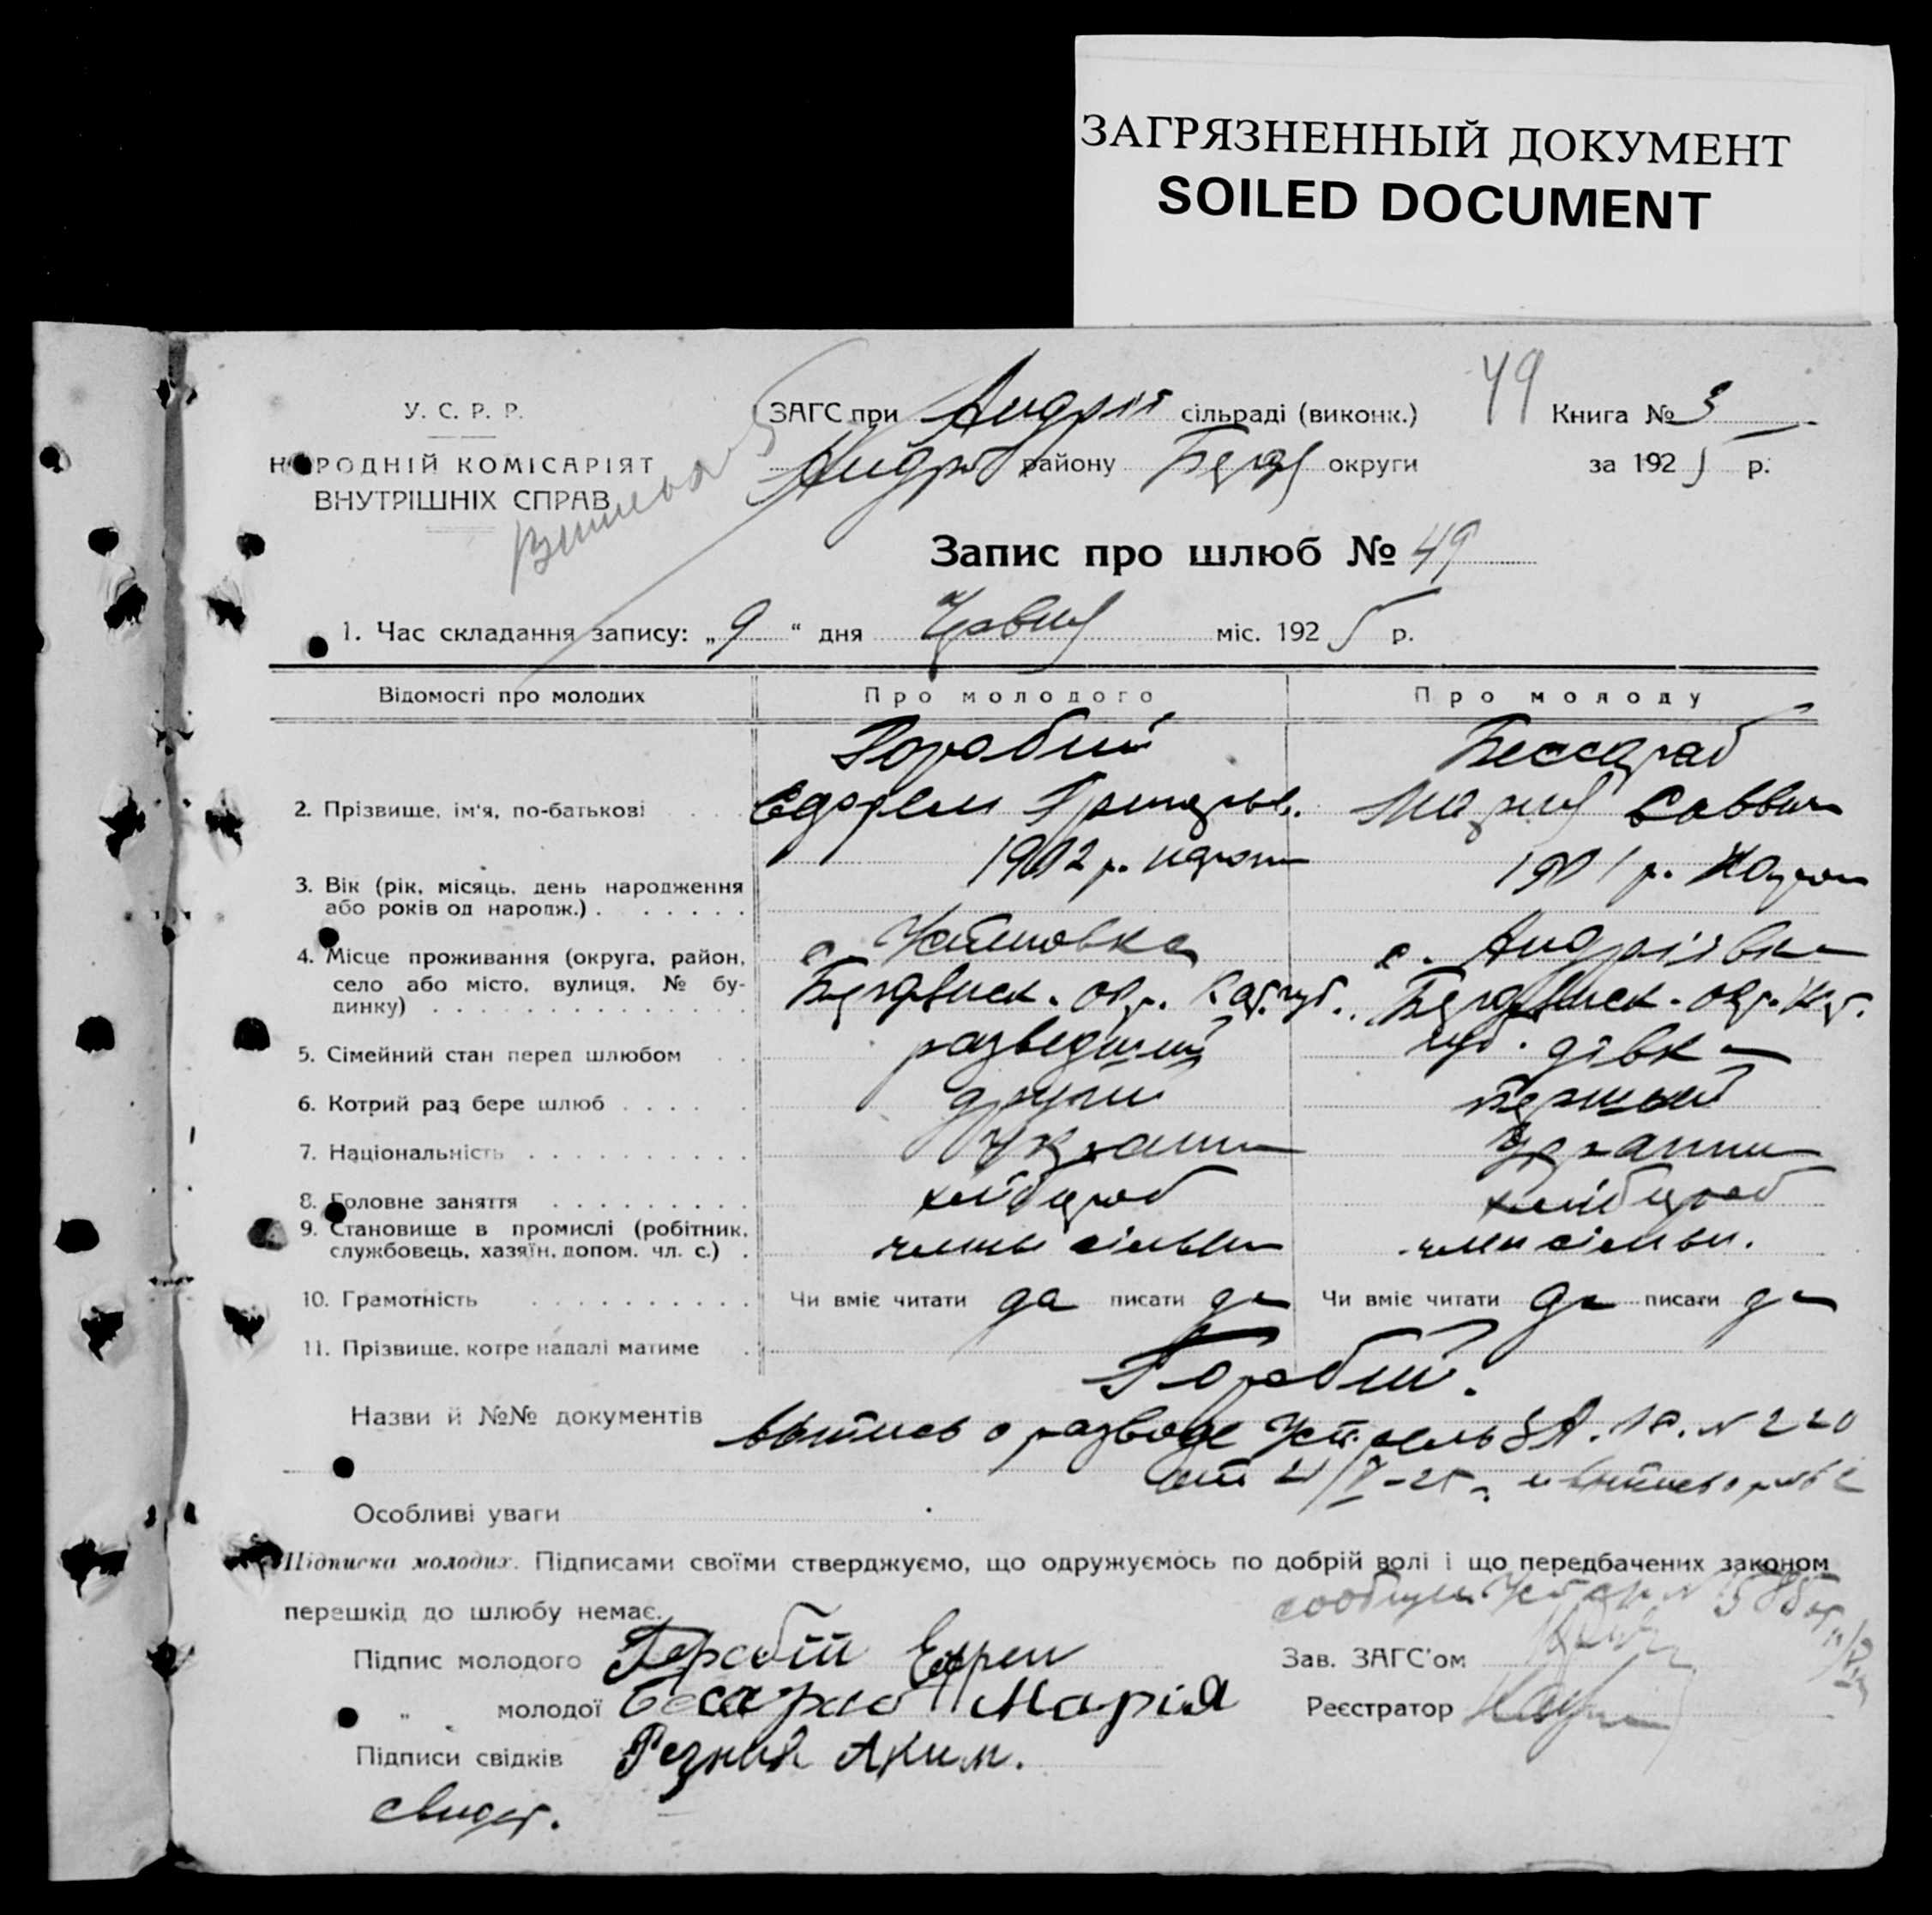 ЗАГРЯЗНЕННЫЙ ДОКУМЕНТ
SOILED DOCUMENT
У. С. Р. Р.
НАРОДНІЙ КОМІСАРІЯТ
ВНУТРІШНІХ СПРАВ
ЗАГС при Андріїв сільраді (виконк.)
49
Книга № 3
Андрів району Берд округи
за 1925 р.
Запис про шлюб № 49
1. Час складання запису: „9“ дня Червня міс. 1925 р.
Відомості про молодих
Про молодого
Про молоду
2. Прізвище, ім'я, по-батькові
Горобий
Бессараб
Мария Саввич
3. Вік (рік, місяць, день народження або років од народж.)
1902 р.
1901 р.
4. Місце проживання (округа, район, село або місто, вулиця, № будинку)
с. Устиновка
Бердянськ. окр. Кат. губ.
с. Андріївка
Бердянськ. окр. Кат.
губ.
5. Сімейний стан перед шлюбом
разведений
дівка
6. Котрий раз бере шлюб
другий
первый
7. Національність
Украин
Украин
8. Головне заняття
хлібороб
хлібороб
9. Становище в промислі (робітник, службовець, хазяїн, допом. чл. с.)
члены сімьи
член сімьи.
10. Грамотність
Чи вміє читати да писати да
Чи вміє читати да писати да
11. Прізвище, котре надалі матиме
Горобий.
Назви й №№ документів
выпись о разводе Уст. № 220
от 21/V-25 г. и выпись о
Особливі уваги
Підписка молодих. Підписами своїми стверджуємо, що одружуємось по добрій волі і що передбачених законом
перешкід до шлюбу немає.
Підпис молодого Горобій Ефрем
„ молодої Бесараб Марія
Підписи свідків Резник Аким.
Зав. ЗАГС'ом
Реєстратор
свидет.